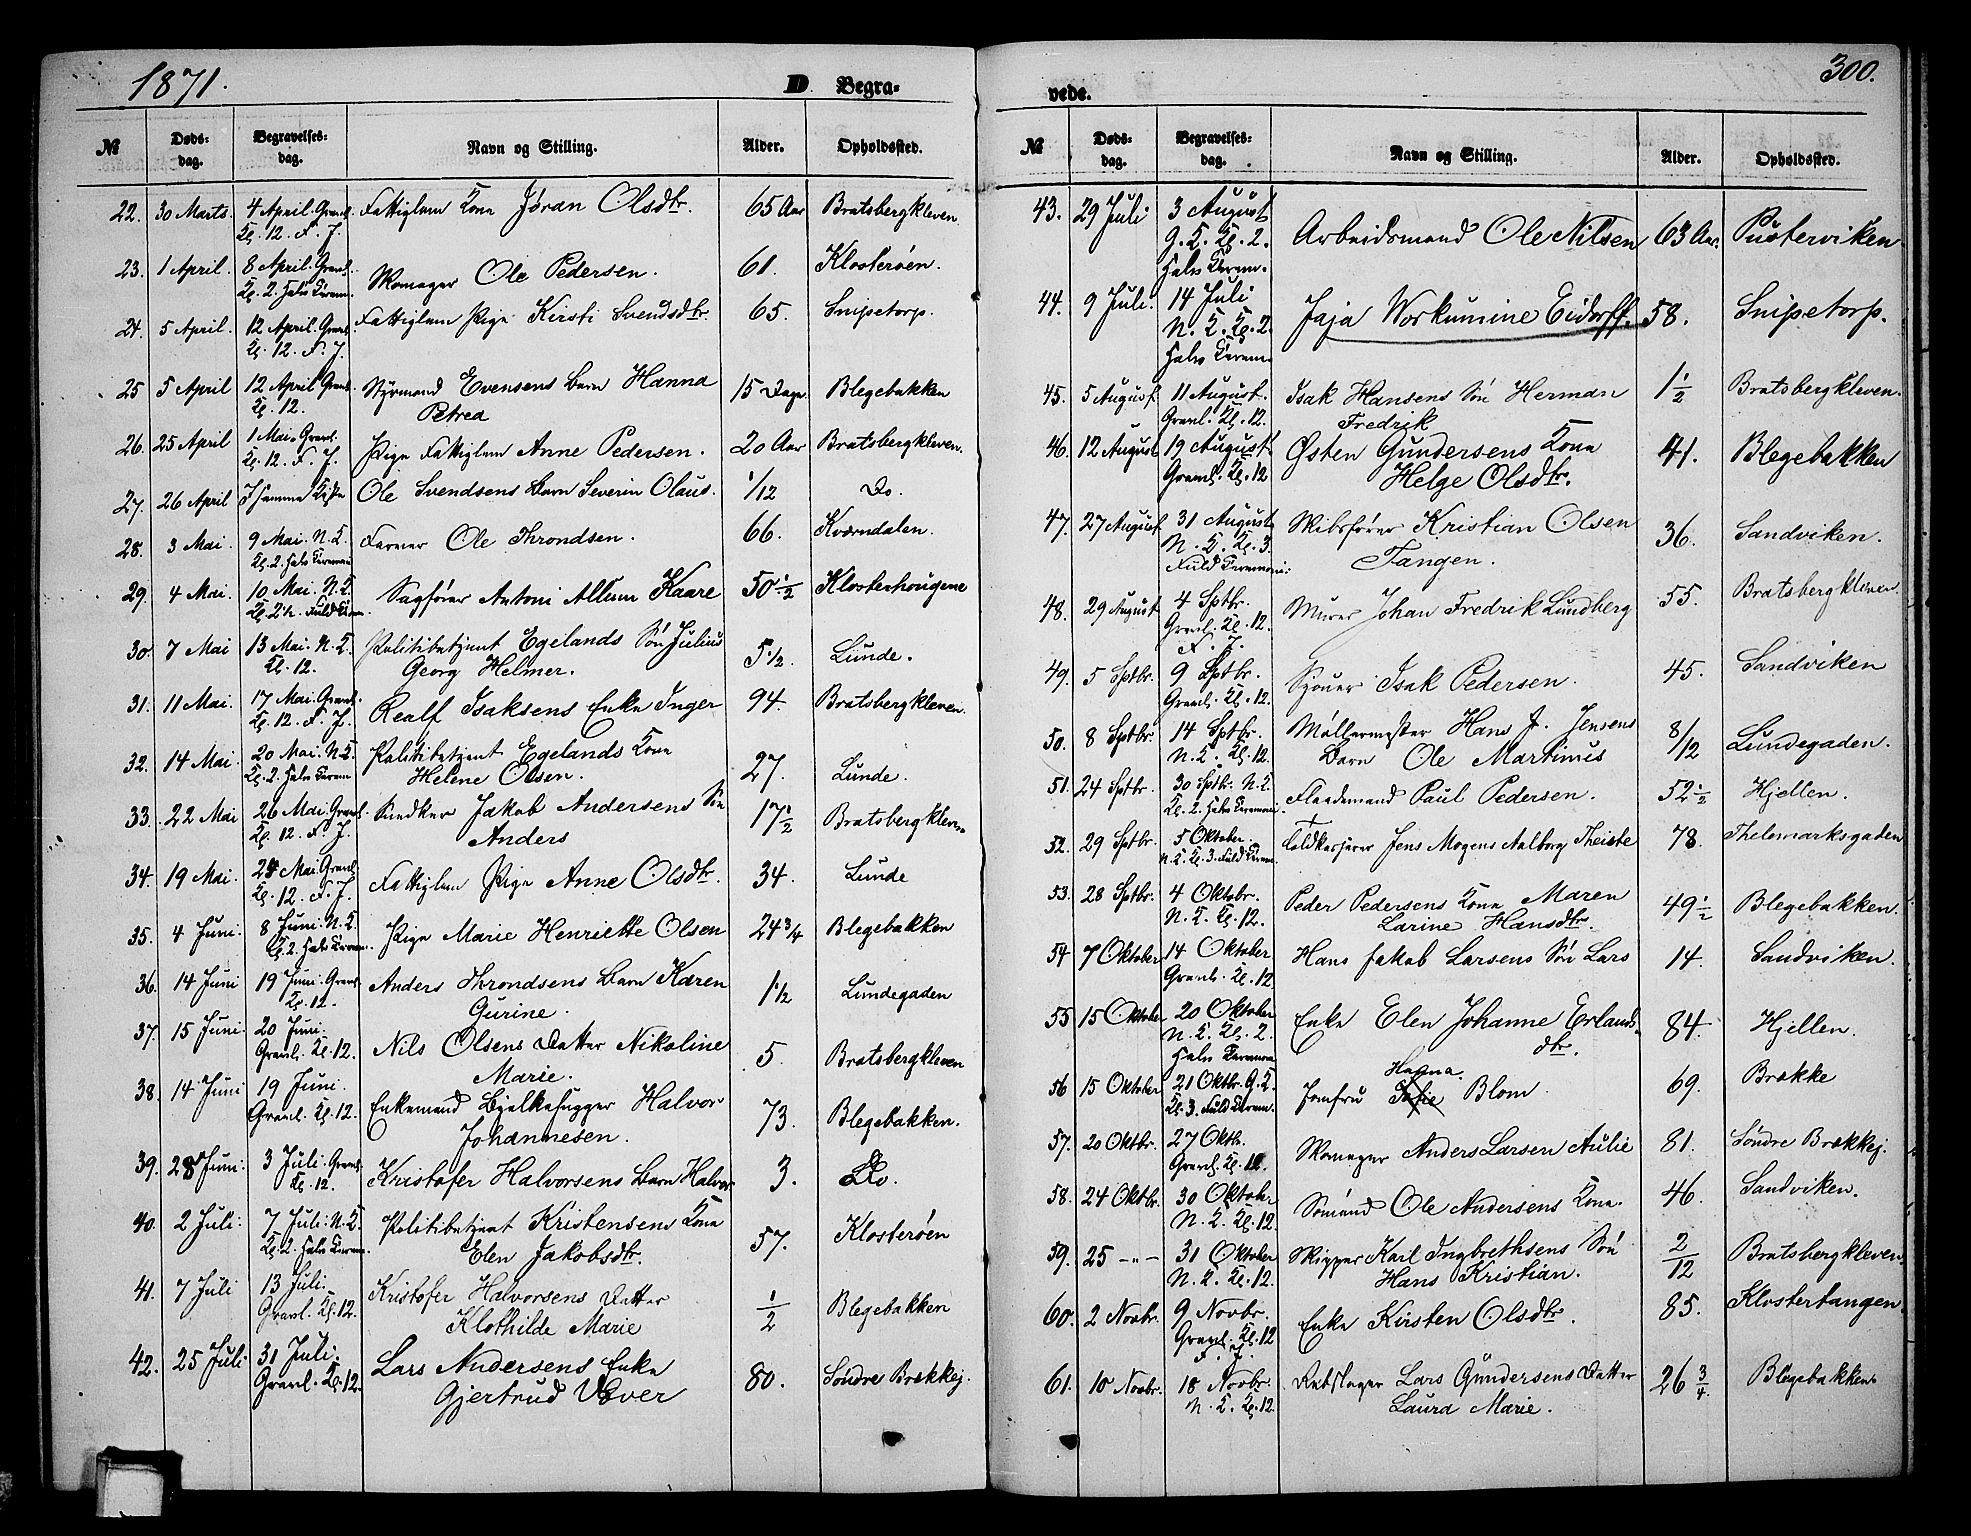 1871.
D. Begra-
№ Døds-dag. Begravelses-dag. Navn og Stilling. Alder. Opholdssted.
22. 30 Marts. 4 April. Gravl. Fattiglem Kone Jøran Olsdtr. 65 Aar Bratsbergkleven.
Kl. 12. F. J.
23. 1 April. 8 April. Gravl. Skomager Ole Pedersen. 61. Klosterøen.
Kl. 2. Halv Cerem.
24. 5 April. 12 April. Gravl. Fattiglem Pige Kirsti Svendsdtr. 65. Snipetorp.
Kl. 12. F. J.
25 5 April 12 April Gravl. Styrmand Evensens Barn Hanna 15 Dage. Blegebakken
Kl. 12. Petrea
26. 25 April 1 Mai. Gravl. Pige Fattiglem Anne Pedersen. 20 Aar Bratsbergkleven.
Kl. 12. F. J.
27. 26 April I samme Kiste Ole Svendsens Barn Severin Olaus. 1/12 Do.
28. 3 Mai. 9 Mai. N. K. Farver Ole Throndsen. 66. Kværndalen.
Kl. 2. Halv Cerem
29. 4 Mai. 10 Mai. N. K. Sagfører Antoni Allum Kaare 50 1/2 Klosterhougene
Kl. 2 1/2. Fuld Cerem.
30. 7 Mai 13 Mai. N. K. Politibetjent Egelands Søn Julius 5 1/2. Lunde.
Kl. 12. Georg Helmer.
31. 11 Mai. 17 Mai. Gravl. Realf Isaksens Enke Inger 94. Bratsbergkleven.
Kl. 12. F. J.
32. 14 Mai. 20 Mai. N. K. Politibetjent Egelands Kone 27. Lunde.
Kl. 2. Halv Cerem Helene Olsen.
33. 22 Mai 26 Mai Gravl. Snedker Jakob Andersens Søn 17 1/2 Bratsbergkleven
Kl. 12. F. J. Anders
34. 19 Mai. 24 Mai Gravl. Fattiglem Pige Anne Olsdtr. 34. Lunde
Kl. 12. F. J.
35. 4 Juni. 8 Juni. N. K. Pige Marie Henriette Olsen 24 3/4 Blegebakken
Kl. 2. Halv Cerem.
36. 14 Juni 19 Juni. Gravl. Anders Throndsens Barn Karen 1 1/2 Lundegaden
Kl. 12. Gurine.
37. 15 Juni. 20 Juni. Nils Olsens Datter Nikoline 5. Bratsbergkleven
Gravl. Kl. 12. Marie.
38. 14 Juni 19 Juni. Enkemand Bjelkehugger Halvor 73. Blegebakken.
Gravl. Kl. 12. Johannesen.
39. 28 Juni. 3 Juli. Gravl. Kristofer Halvorsens Barn Halvor 3. Do.
Kl. 12.
40. 2 Juli. 7 Juli. N. K. Politibetjent Kristensens Kone 57. Klosterøen
Kl. 2. Halv Cerem. Elen Jakobsdtr.
41. 7 Juli 13 Juli. Kristofer Halvorsens Datter 1/2 Blegebakken
Gravl. Kl. 12. Klothilde Marie
42. 25 Juli 31 Juli. Lars Andersens Enke 80. Søndre Brækkej.
Gravl. Kl. 12. Gjertrud Væver
300.
vede.
№ Døds-dag. Begravelses-dag. Navn og Stilling. Alder. Opholdssted.
43. 29 Juli 3 August Arbeidsmand Ole Nilsen 63 Aar. Pusterviken
G. K. Kl. 2.
Halv Cerem.
44. 9 Juli. 14 Juli Jaja Workumine Eidorff. 58. Snipetorp.
N. K. Kl. 2.
Halv Cerem
45. 5 August 11 August. Isak Hansens Søn Herman 1 1/2 Bratsbergkleven.
Gravl. Kl. 12. Fredrik
46. 12 August 19 August Østen Gundersens Kone 41. Blegebakken
Gravl. Kl. 12 Helge Olsdtr.
47. 27 August 31 August Skibsfører Kristian Olsen 36. Sandviken.
N. K. Kl. 3. Tangen.
Fuld Ceremoni.
48. 29 August 4 Sptbr. Murer Johan Fredrik Lundberg 55. Bratsbergkleven
Gravl. Kl. 12.
F. J.
49. 5 Sptbr. 9 Sptbr. Sjouer Isak Pedersen. 45. Sandviken
Gravl. Kl. 12.
50. 8 Sptbr. 14 Sptbr. Møllermester Hans J. Jensens 8/12 Lundegaden.
N. K. Kl. 12. Barn Ole Martinius
51. 24 Sptbr. 30 Sptbr. N. K. Flaademand Paul Pedersen. 52 1/2 Hjellen.
Kl. 2. Halv Ceremoni.
52. 29 Sptbr. 5 Oktober. Toldkasserer Jens Mogens Aalborg Theiste 78. Thelemarksgaden
N. K. Kl. 3. Fuld Cerem.
53. 28 Sptbr. 4 Oktobr. Peder Pedersens Kone Maren 49 1/2 Blegebakken.
N. K. Kl. 12. Larine Hansdtr.
54 7 Oktober 14 Oktober Hans Jakob Larsens Søn Lars 14. Sandviken.
Gravl. Kl. 12
55 15 Oktober 20 Oktober Enke Elen Johanne Erlands- 84. Hjellen.
N. K. Kl. 2. dtr.
Halv Cerem
Hanna.
56 15 Oktober 21 Oktbr. G. K. Jomfru Sofie Blom. 69. Brække
Kl. 3. Fuld Cerem.
57. 20 Oktbr. 27 Oktb. Skomager Anders Larsen Aulie 81. Søndre Brækkej.
Gravl. Kl. 12.
58. 24 Oktbr. 30 Oktober Sømand Ole Andersens Kone. 46. Sandviken.
N. K. Kl. 12.
59. 25 -"- 31 Oktober Skipper Karl Ingbrethsens Søn 2/12 Bratsbergkleven
N. K. Kl. 12. Hans Kristian.
60. 2 Novbr. 9 Novbr. Enke Kirsten Olsdtr. 85. Klostertangen.
Gravl. Kl. 12
F. J.
61. 10 Novbr. 18 Novbr. Rebslager Lars Gundersens Datter 26 3/4. Blegebakken
N. K. Kl. 12. Laura Marie.